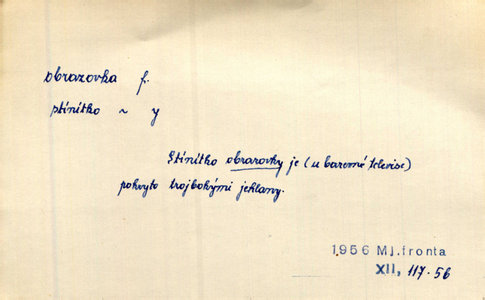 obrazovka f.
stínítko ~ y
Stínítko obrazovky je (u barevné televise)
pokryto trojbokými jehlany.
1956 Ml.fronta
XII, 117.56